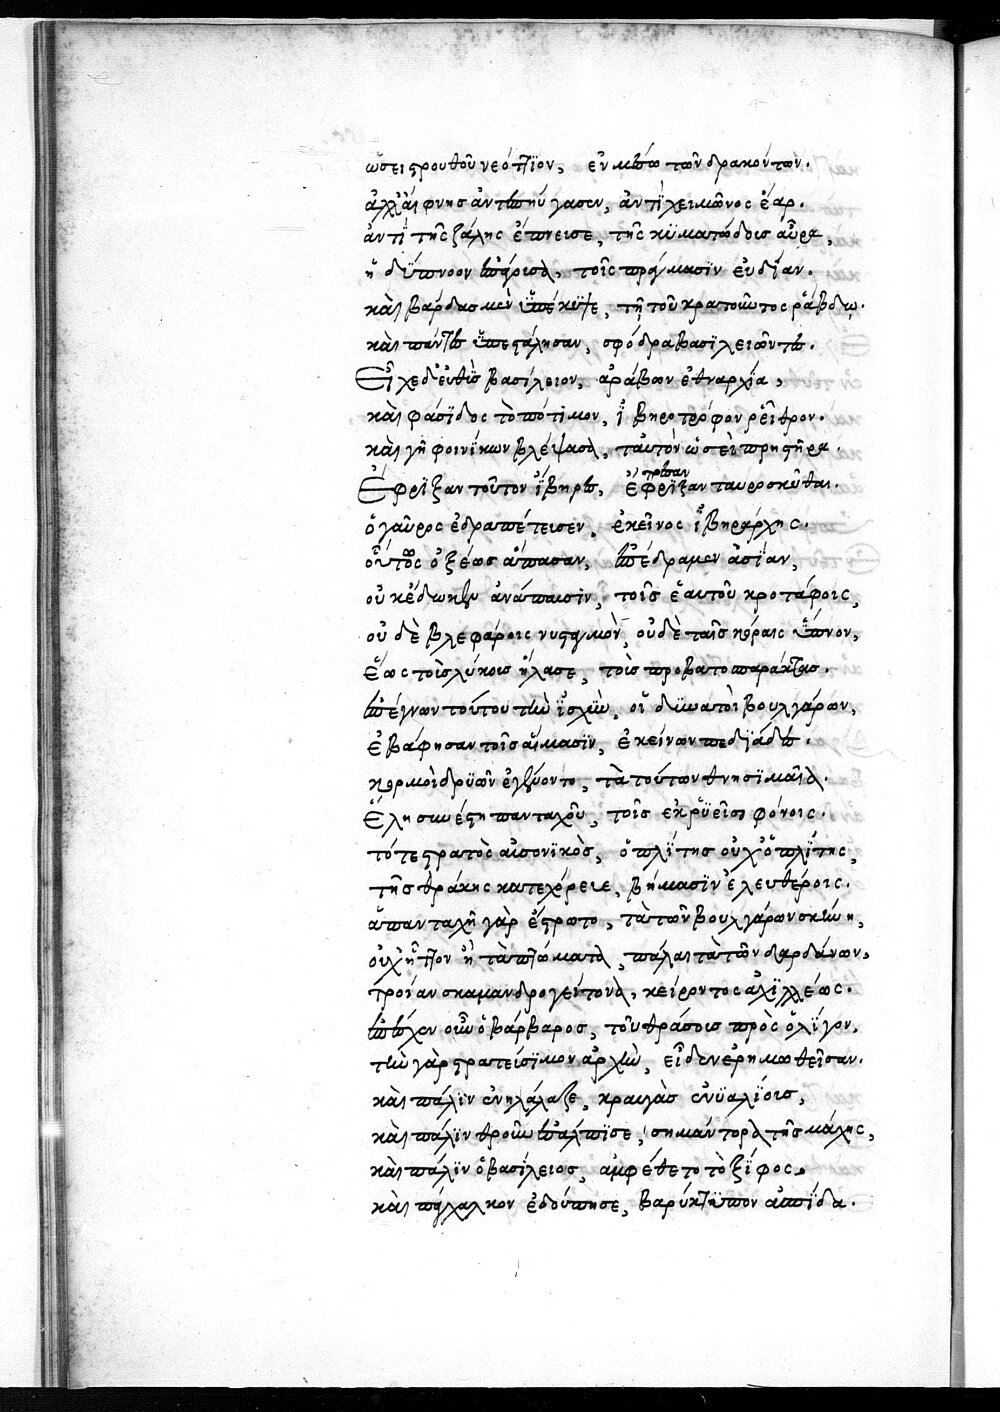 ὡσεὶ στρουθοῦ νεόττιον, ἐν μέσῳ τῶν δρακόντων.
ἀλλ' αἴφνης ἀντεπηύγασεν, ἀντὶ χειμῶνος ἔαρ.
ἀντὶ τῆς ζάλης ἔπνεισε, τῆς κυματώδους αὔρα,
ἡ δύπνοον ἐπάρασα, τοῖς πράγμασιν εὐδίαν.
καὶ Βάρδας μὲν ὑπέκυψε, τῇ τοῦ κρατοῦντος ῥάβδῳ.
καὶ πάντες ὑπεστάλησαν, σφόδρα βασιλειῶντες.
Εἶχε δ' εὐθὺς βασίλειον, ἀράβων ἐθναρχία,
καὶ φάσιδος τὸ πότιμον, ἰβηροτρόφον ῥεῖθρον.
καὶ γῆ φοινίκων βλέψασα, ταυτὸν ὡσεὶ πρηστῆρα.
Ἔφριξαν τοῦτον ἴβηρες, ἔφριξαν ταυροσκύθαι.
ὁ γαῦρος ἐδραπέτευσεν, ἐκεῖνος ἰβηράρχης.
οὗτος ὀξέως ἅπασαν, ἐπέδραμεν ἀσίαν,
οὐκ ἔδωκεν ἀνάπαυσιν, τοῖς ἑαυτοῦ κροτάφοις,
οὐδὲ βλεφάροις νυσταγμὸν, οὐδὲ ταῖς κόραις ὕπνον,
ἕως τοὺς λύκους ἤλασε, τοὺς προβατοπαράκτας.
ἐπέγνων τούτου τὴν ἰσχὺν, οἱ δυνατοὶ βουλγάρων,
ἐβάφησαν τοῖς αἵμασιν, ἐκείνων πεδιάδες.
κορμοὶ δρυῶν ἐγένοντο, τὰ τούτων θνησιμαῖα.
πανταχοῦ, τοῖς φόνοις.
τότε στρατὸς αὐσονικὸς, ὁπλίτης οὐχ ὁπλίτης,
τῆς θράκης κατεχόρευε, βήμασιν ἐλευθέροις.
ἁπανταχῆ γὰρ ἔστρωτο, τὰ τῶν βουλγάρων σκύνη,
οὐχ ἧττον ἢ τὰ πτώματα, πάλαι τὰ τῶν δαρδάνων,
τροίαν σκαμανδρογείτονα, κείροντος ἀχιλλέως.
ἐπέσχεν οὖν ὁ βάρβαρος, τοῦ θράσους πρὸς ὀλίγον,
τὴν γὰρ στρατεύσιμον ἀρχὴν, εἶδεν ἐρημωθεῖσαν.
καὶ πάλιν ἐνηλάλαξε, κραυγὰς ἐνυαλίους,
καὶ πάλιν θροῦν ἐσάλπισε, σημάντορα τῆς μάχης,
καὶ πάλιν ὁ βασίλειος, ἀμφέθετο τὸ ξίφος.
καὶ πάγχαλκον ἐδούπησε, βαρύκτυπον ἀσπίδα.